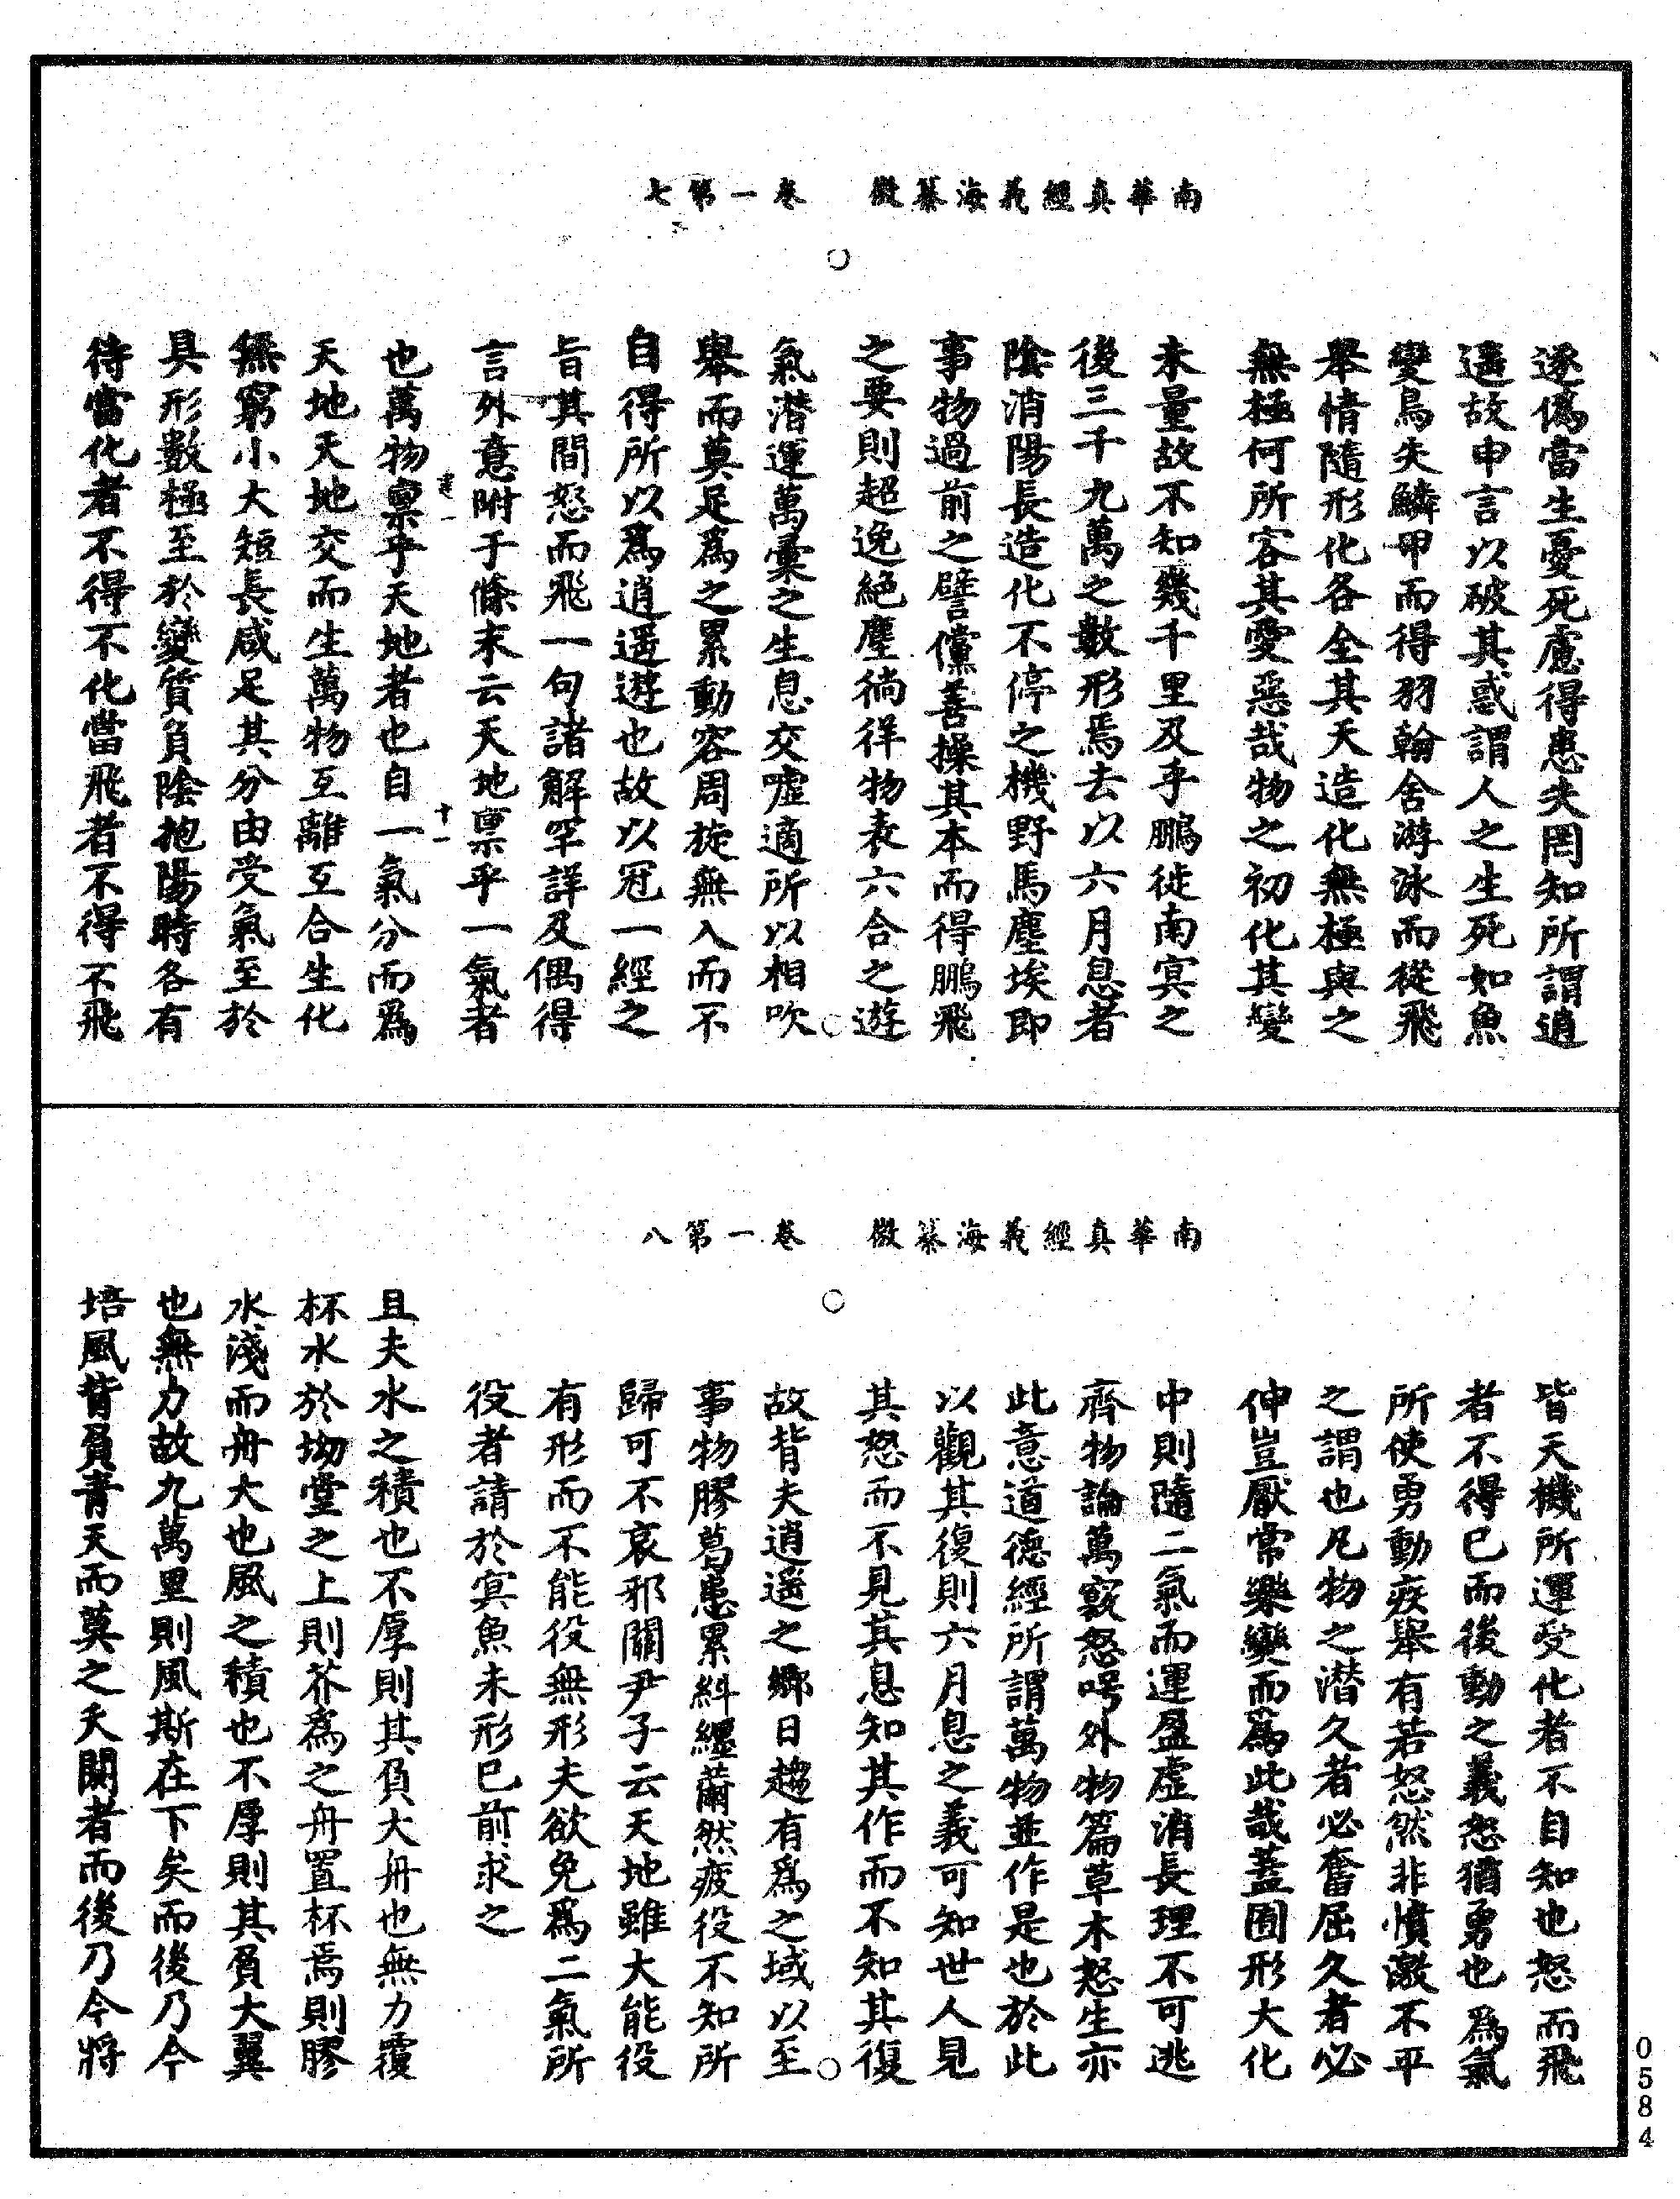 南華真經義海纂微　卷一第七
逐僞當生憂死慮得患失罔知所謂逍
遥故申言以破其惑謂人之生死如魚
變鳥失鱗甲而得羽翰舍游泳而從飛
舉情隨形化各全其天造化無極與之
無極何所容其愛惡哉物之初化其變
未量故不知幾千里及乎鵬徙南冥之
後三千九萬之數形焉去以六月息者
陰消陽長造化不停之機野馬塵埃即
事物過前之譬儻善操其本而得鵬飛
之要則超逸絕塵徜徉物表六合之遊
氣潜運萬彙之生息交噓適所以相吹
舉而莫足爲之累動容周旋無入而不
自得所以爲逍遥遊也故以冠一經之
旨其間怒而飛一句諸解罕詳及偶得
言外意附于條末云天地禀乎一氣者
也萬物禀乎天地者也自一氣分而爲
天地天地交而生萬物互離互合生化
無窮小大短長咸足其分由受氣至於
具形數極至於變質負陰抱陽時各有
待當化者不得不化當飛者不得不飛
南華真經義海纂微　卷一第八
皆天機所運受化者不自知也怒而飛
者不得已而後動之義怒猶勇也爲氣
所使勇動疾舉有若怒然非憤激不平
之謂也凡物之潜久者必奮屈久者必
伸豈厭常樂變而爲此哉蓋囿形大化
中則隨二氣而運盈虛消長理不可逃
齊物論萬竅怒呺外物篇草木怒生亦
此意道德經所謂萬物並作是也於此
以觀其復則六月息之義可知世人見
其怒而不見其息知其作而不知其復
故背夫逍遥之鄉日趨有爲之域以至
事物膠葛患累糾纒薾然疲役不知所
歸可不哀邪關尹子云天地雖大能役
有形而不能役無形夫欲免爲二氣所
役者請於冥魚未形已前求之
且夫水之積也不厚則其負大舟也無力覆
杯水於坳堂之上則芥爲之舟置杯焉則膠
水淺而舟大也風之積也不厚則其負大翼
也無力故九萬里則風斯在下矣而後乃今
培風背負青天而莫之夭閼者而後乃今將
0584